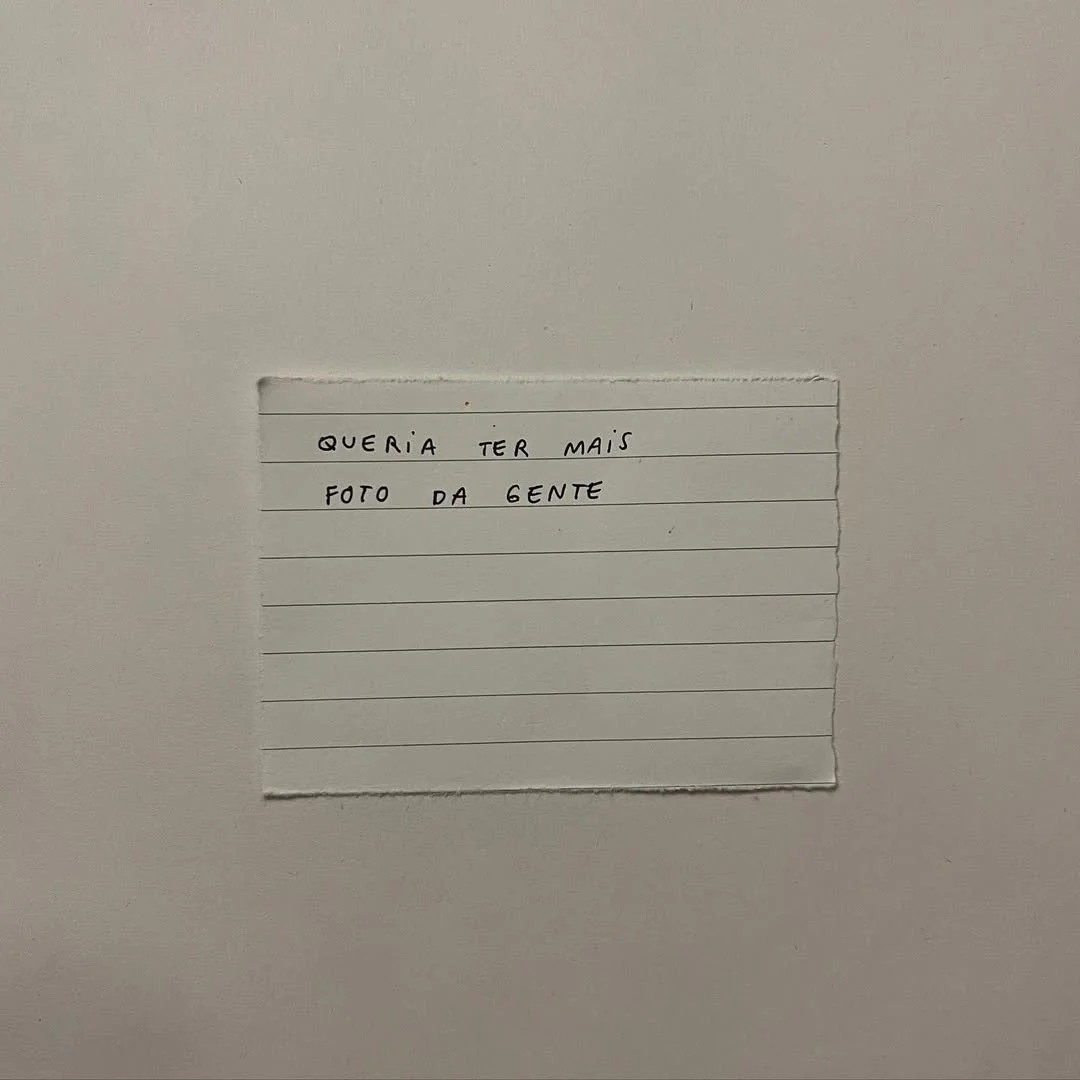 QUERIA TER MAIS
FOTO DA GENTE